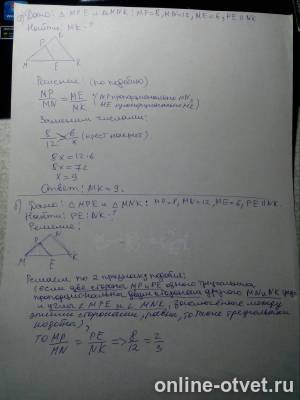 а) Дано: △ MPE и △ MNK: MP=8, MN=12, ME=6, PE ∥ NK.
Найти: MK-?
N
P
M E K
Решение: (по подобию)
MP/MN = ME/MK (MP пропорционально MN,
ME пропорционально MK)
Заменим числами:
8/12 = 6/x (крест накрест)
8x = 12·6
8x = 72
x = 9
Ответ: MK = 9.
б) Дано: △ MPE и △ MNK: MP=8, MN=12, ME=6, PE ∥ NK.
Найти: PE : NK-?
Решение:
N
P
M E K
Решаем по 2 признаку подобия:
(если две стороны MP и PE одного треугольника
пропорциональны двум сторонам другого MN и NK
и углы заключенные между
этими сторонами, равны, то такие треугольники
подобны)
то MP/MN = PE/NK => 8/12 = 2/3
online-otvet.ru